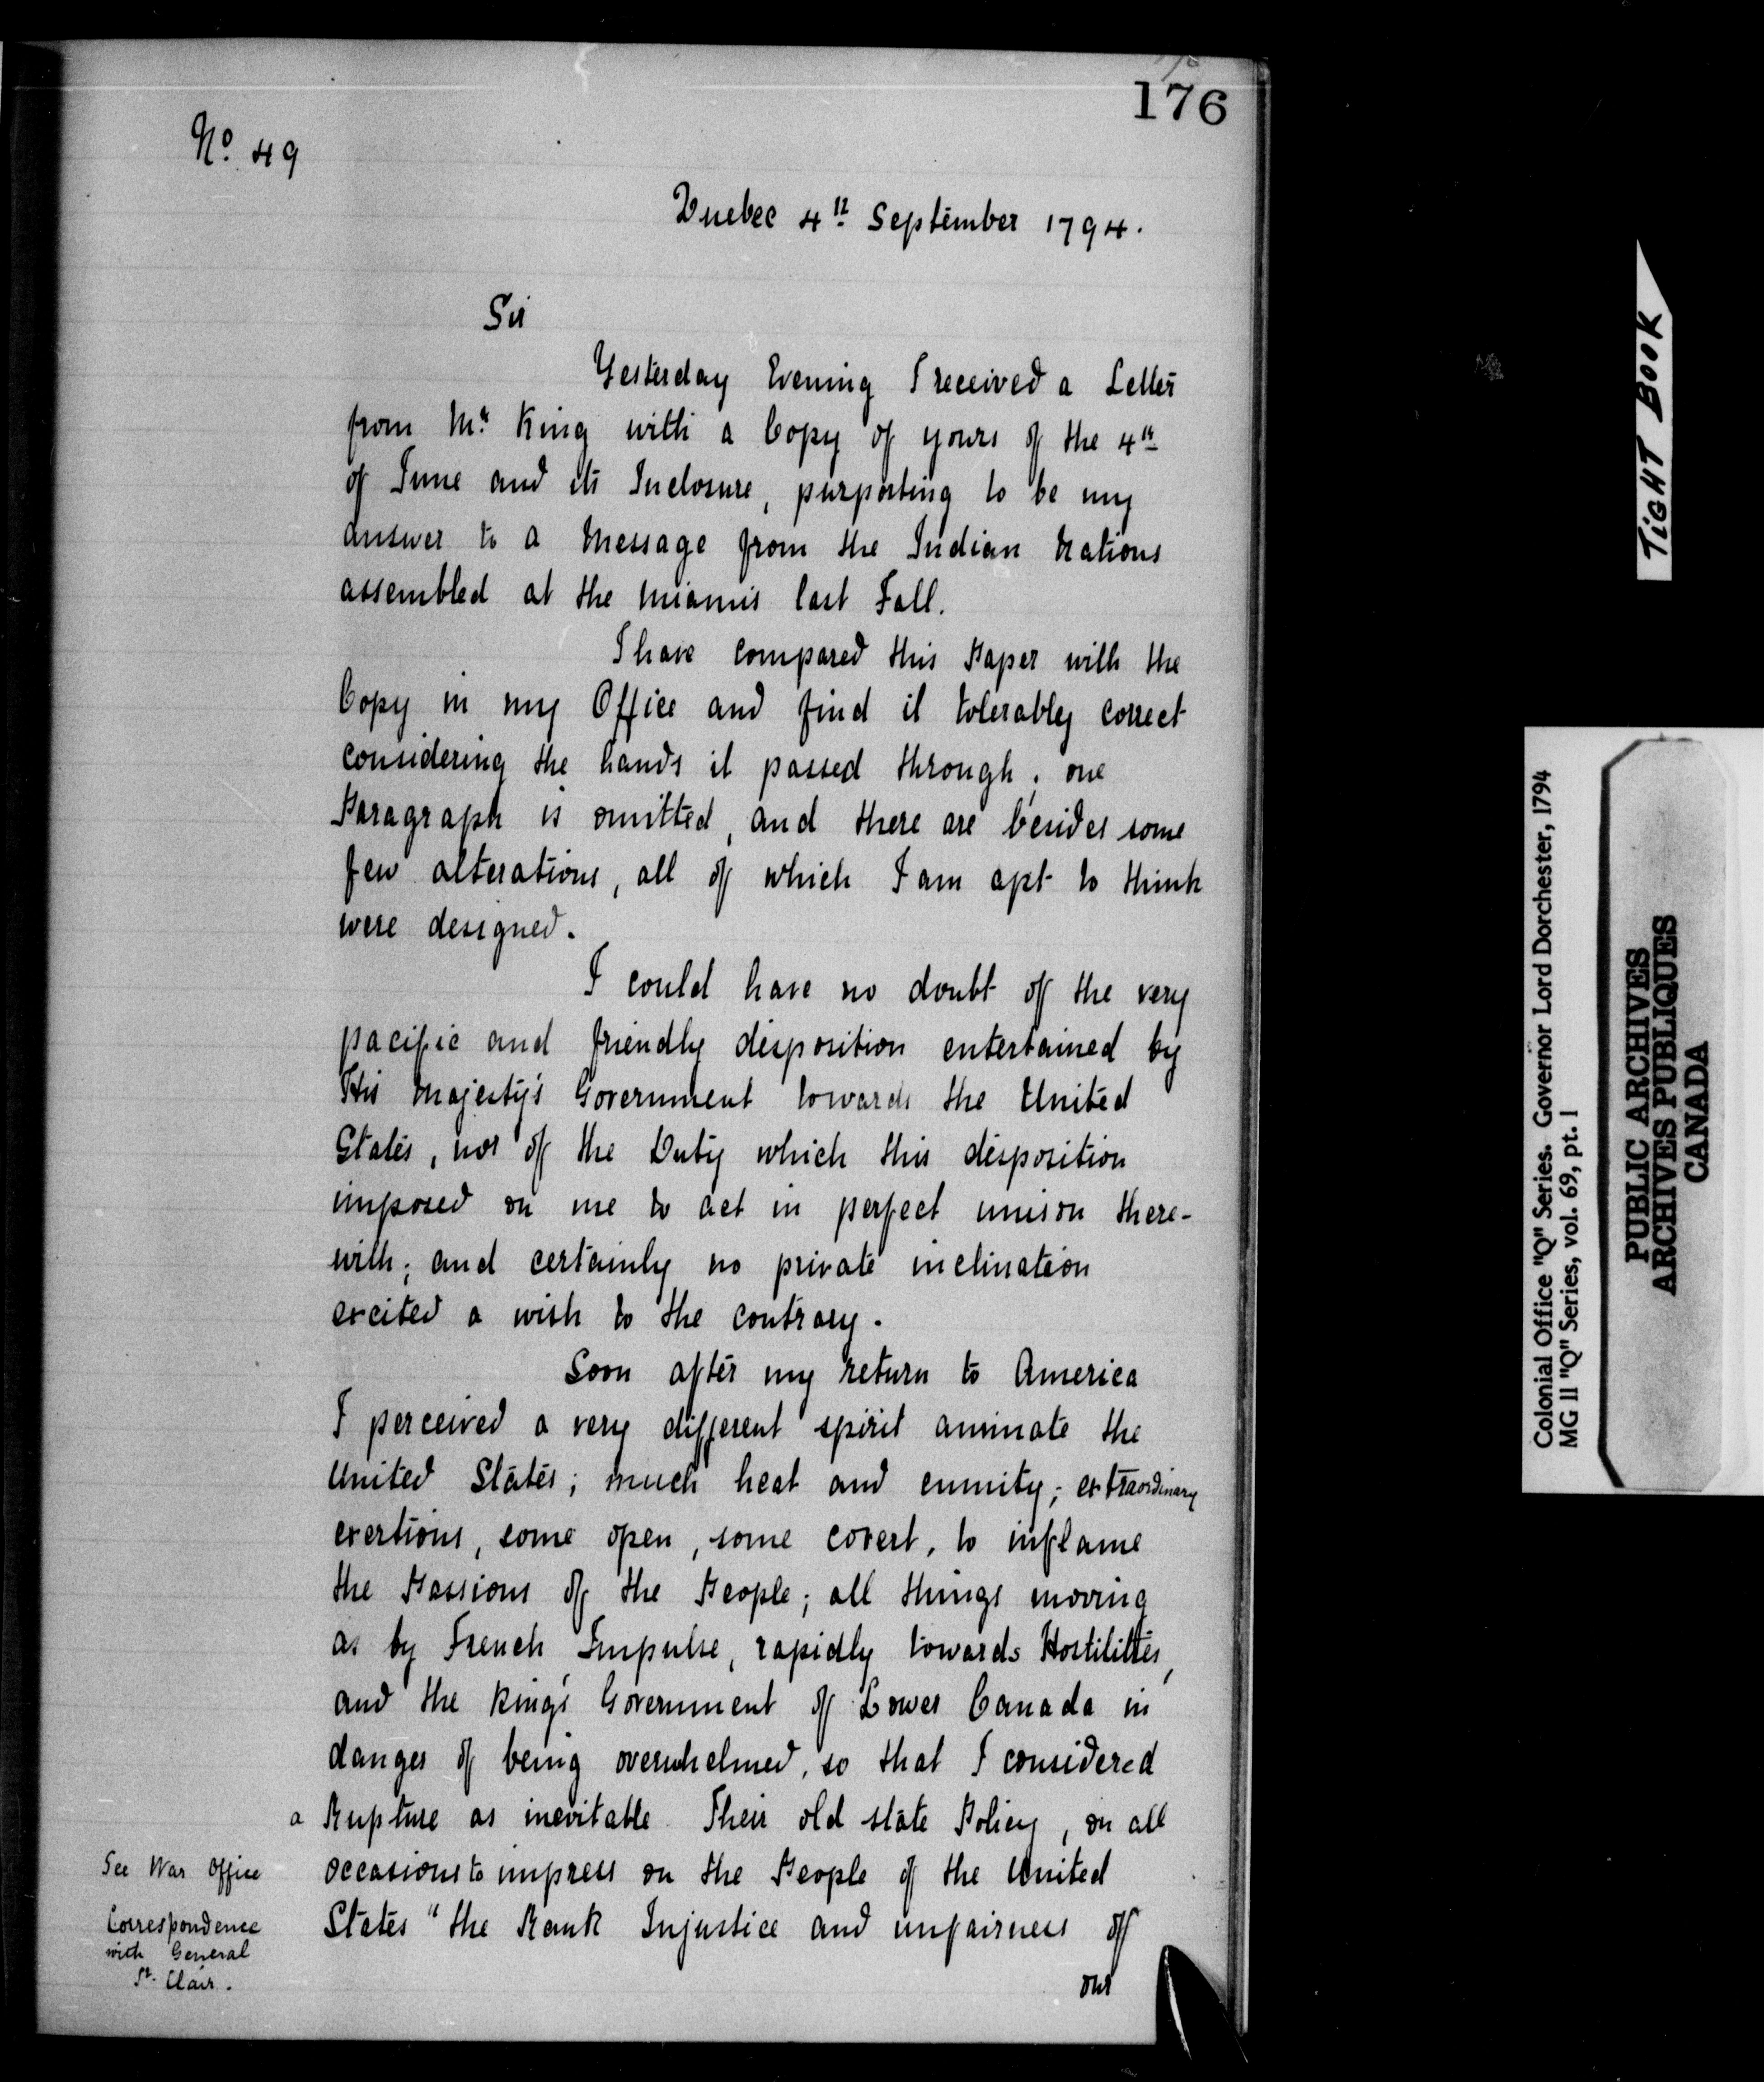 176
No. 49
Quebec 4th September 1794.
Sir
Yesterday Evening I received a Letter
from Mr. King with a Copy of yours of the 4th
of June and its Inclosure, purporting to be my
answer to a Message from the Indian Nations
assembled at the Miamis last Fall.
I have compared this Paper with the
Copy in my Office and find it tolerably correct
considering the hands it passed through; one
Paragraph is omitted, and there are besides some
few alterations, all of which I am apt to think
were designed.
I could have no doubt of the very
pacific and friendly disposition entertained by
His Majesty's Government towards the United
States, nor of the Duty which this disposition
imposed on me to act in perfect unison there-
with; and certainly no private inclination
excited a wish to the contrary.
Soon after my return to America
I perceived a very different spirit animate the
United States; much heat and enmity; extraordinary
exertions, some open, some covert, to inflame
the Passions of the People; all things moving
as by French Impulse, rapidly towards Hostilities,
and the King's Government of Lower Canada in
danger of being overwhelmed, so that I considered
a Rupture as inevitable. Their old state Policy, on all
occasions to impress on the People of the United
States "the Rank Injustice and unfairness of
our
See War Office
Correspondence
with General
St. Clair.
TIGHT BOOK
Colonial Office "Q" Series. Governor Lord Dorchester, 1794
MG 11 "Q" Series, vol. 69, pt. 1
PUBLIC ARCHIVES
ARCHIVES PUBLIQUES
CANADA